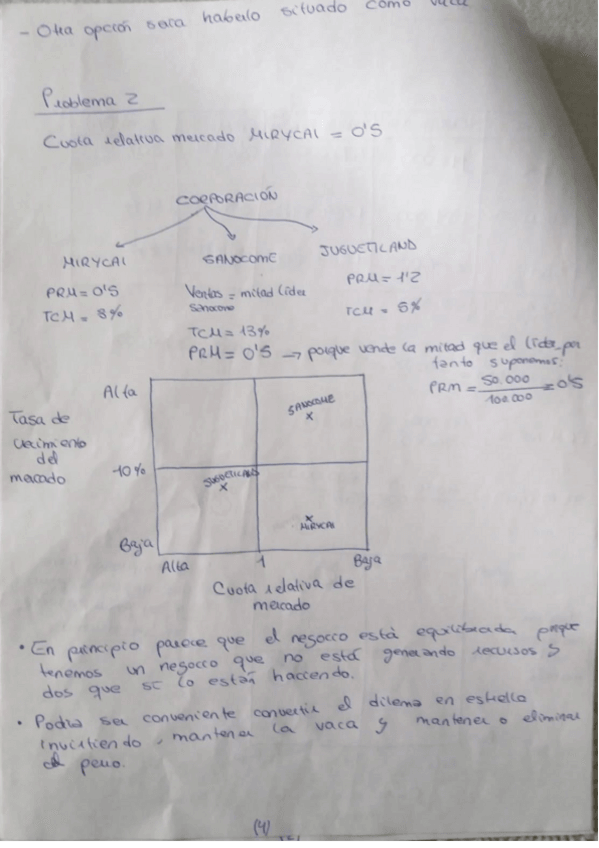 - Otra opción sería haberlo situado como vaca
Problema 2
Cuota relativa mercado MIRYCAI = 0'5
CORPORACIÓN
MIRYCAI
SANOCOME
JUGUETILAND
PRM = 0'5
Ventas = mitad líder
sanocome
PRM = 1'2
TCM = 8%
TCM = 13%
TCM = 5%
PRM = 0'5 → porque vende la mitad que el líder, por
tanto suponemos:
PRM = 50.000 / 100.000 = 0'5
Tasa de
crecimiento
del
mercado
Alta
10%
Baja
SANOCOME
x
JUGUETILAND
x
x
MIRYCAI
Alta
1
Baja
Cuota relativa de
mercado
• En principio parece que el negocio está equilibrada porque
tenemos un negocio que no está generando recursos y
dos que sí lo están haciendo.
• Podría ser conveniente convertir el dilema en estrella
invirtiendo, mantener la vaca y mantener o eliminar
el perro.
(4)